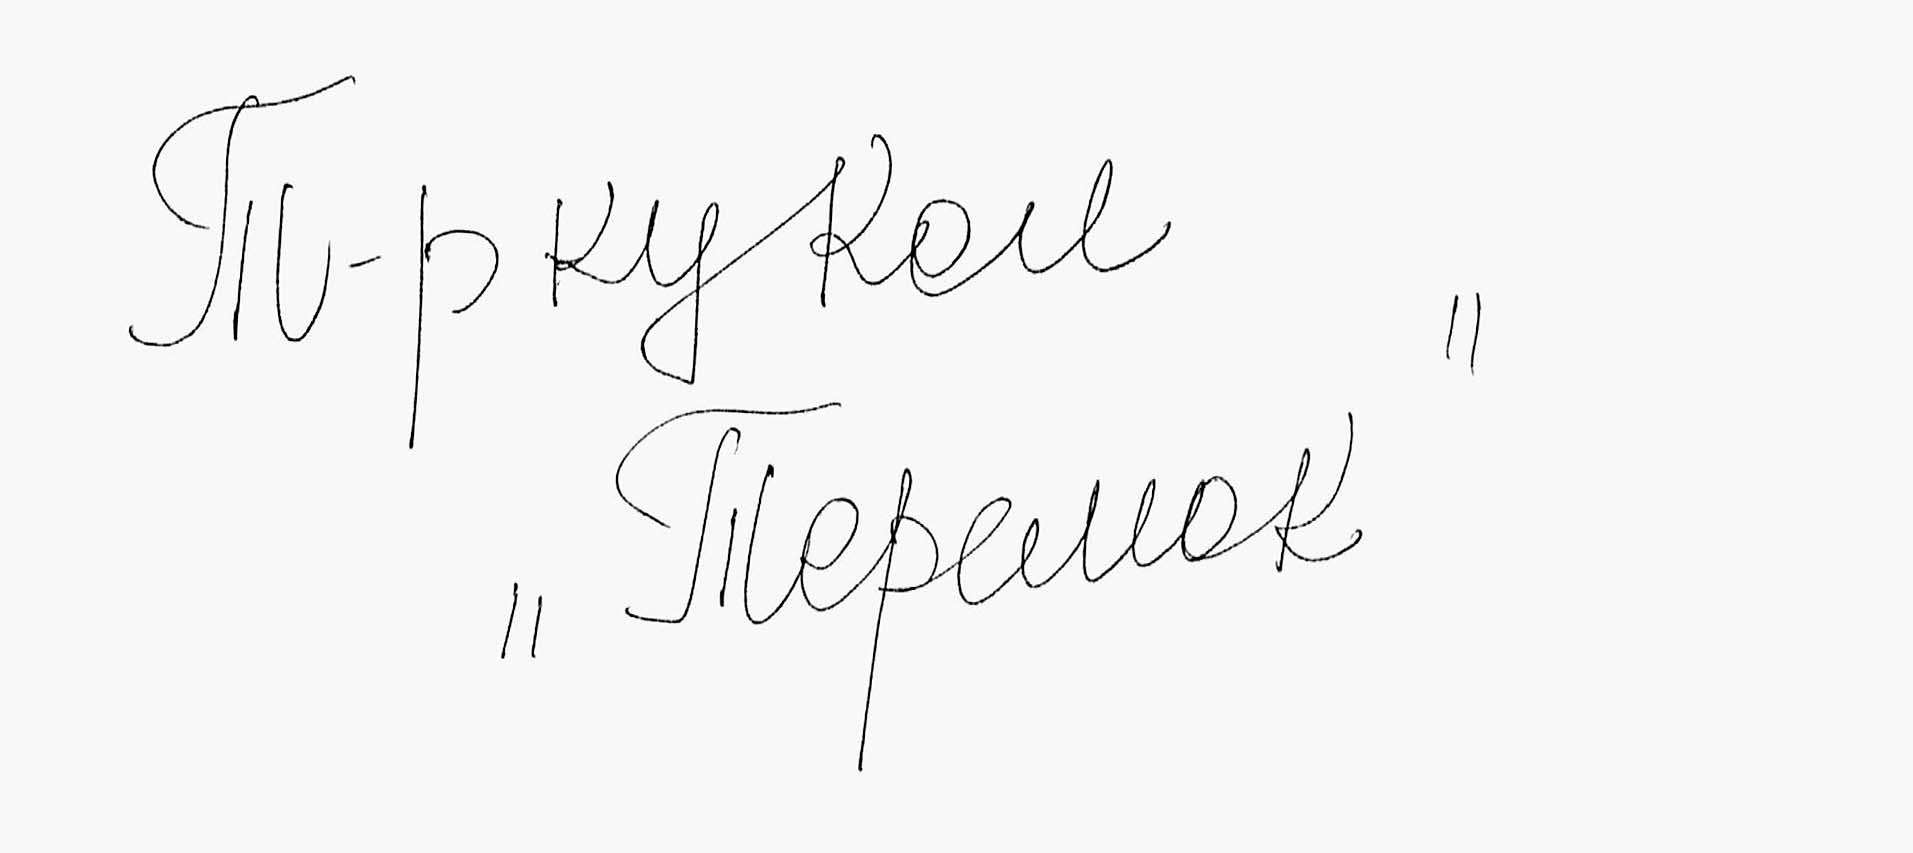 Т-р кукол
„Теремок"